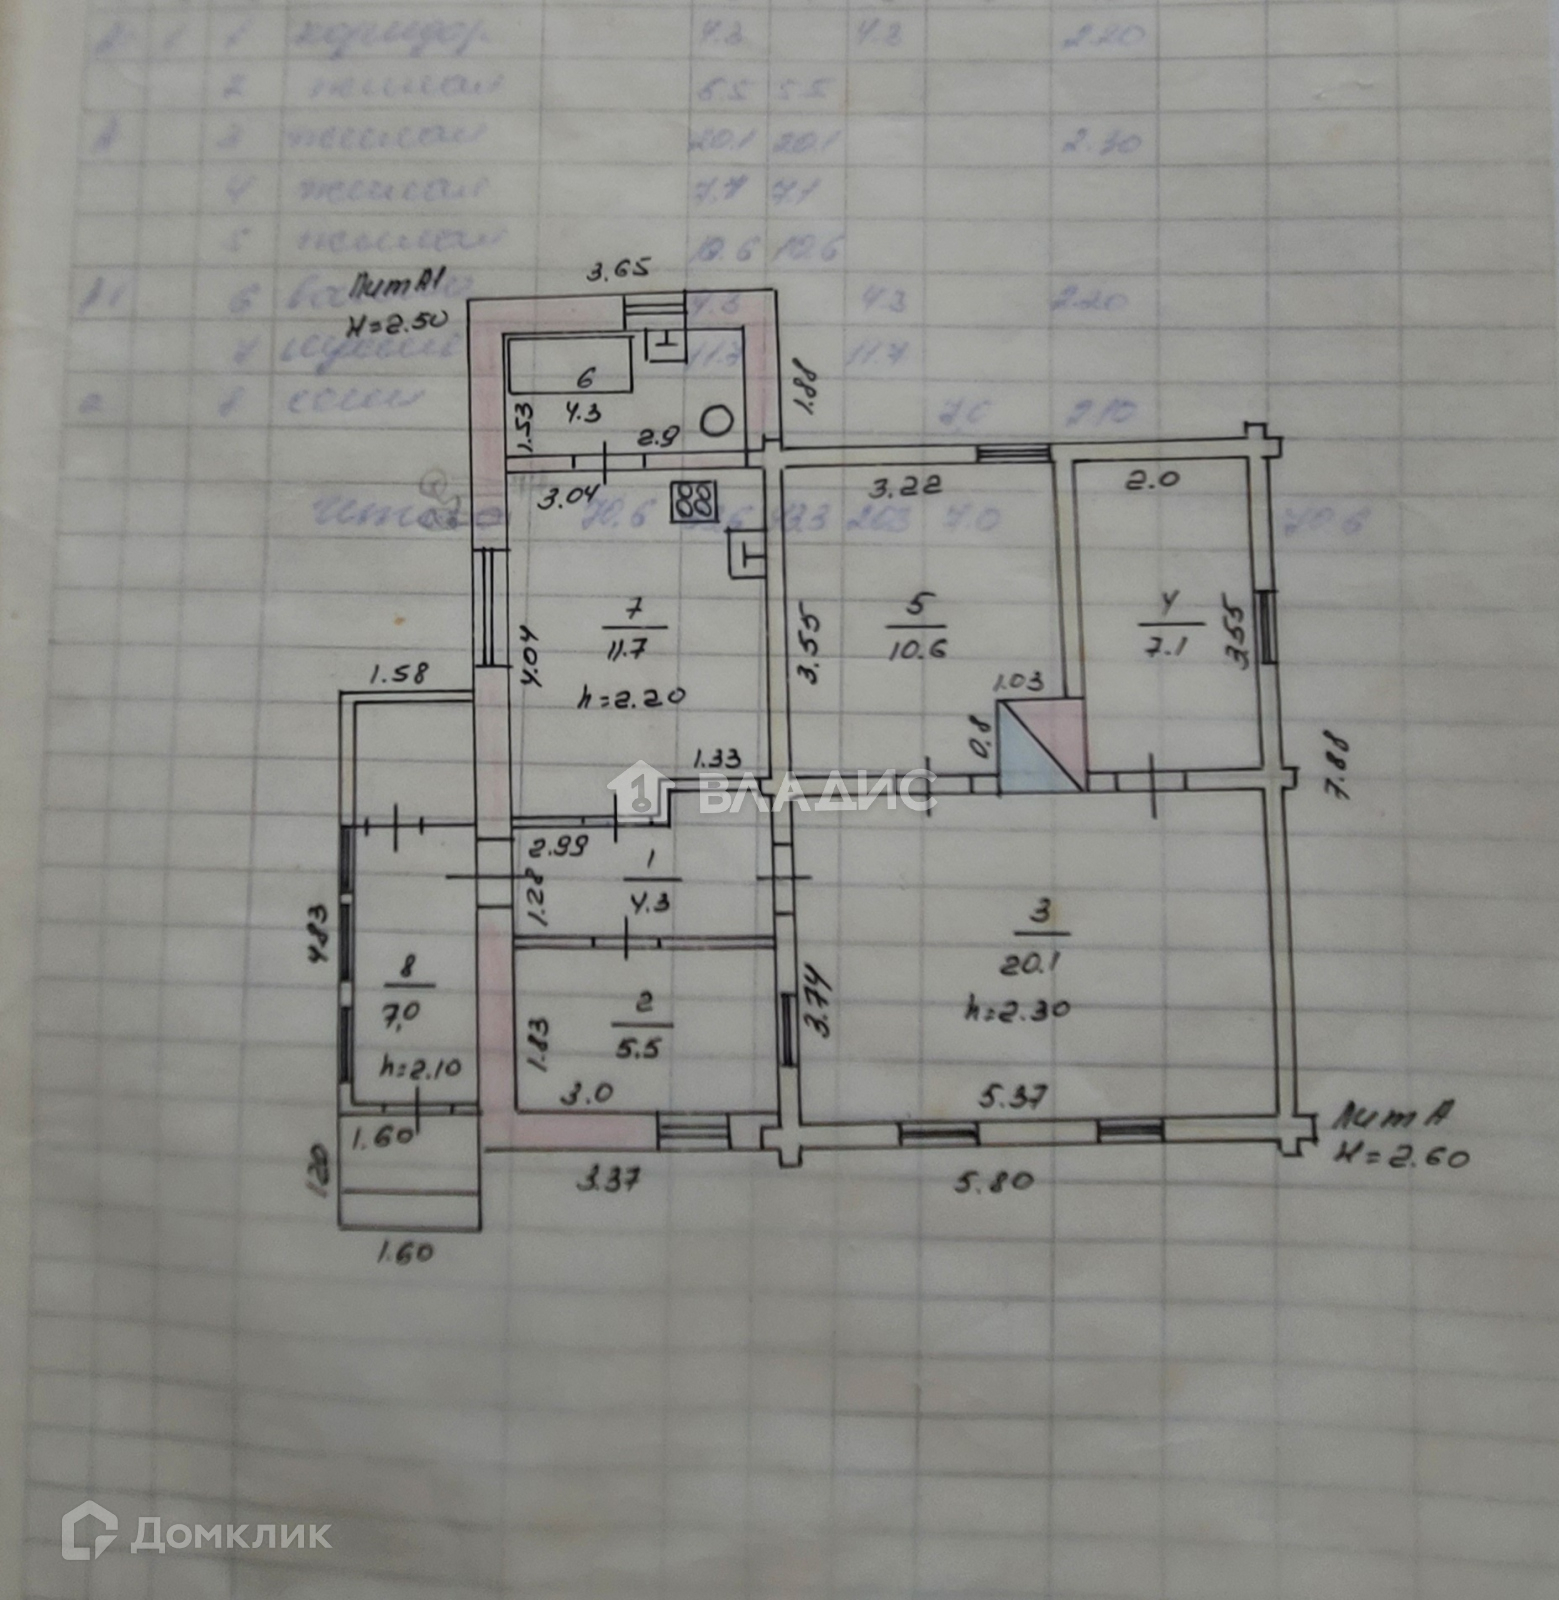 1 1 коридор 4.3 4.3 2.20
2 жилая 5.5 5.5
А 3 жилая 20.1 20.1 2.30
4 жилая 7.1 7.1
5 жилая 10.6 10.6
А1 6 4.3 4.3 2.20
7 кухня 11.7 11.7
а 8 сени 7.0 2.10
Итого 70.6 43.3 20.3 7.0 70.6
Лит А1
H=2.50
3.65
1.88
6
4.3
1.53
2.9
3.04
3.22
2.0
7
11.7
h=2.20
4.04
3.55
5
10.6
4
7.1
3.55
1.03
0.8
7.88
1.58
1.33
ВЛАДИС
2.99
1
4.3
1.28
4.83
8
7,0
h=2.10
2
5.5
1.83
3.0
3.74
3
20.1
h=2.30
5.37
1.60
1.20
3.37
5.80
Лит А
H=2.60
1.60
Домклик